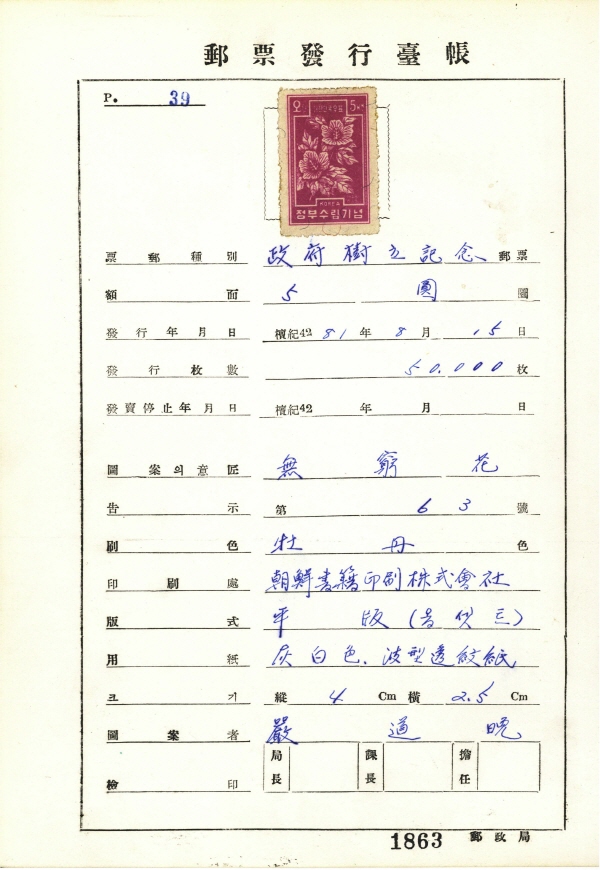 郵票發行臺帳
P. 39
오 5
정부수립기념
票郵種別 政府樹立記念 郵票
額面 5 圓 圜
發行年月日 檀紀42 81 年 8 月 15 日
發行枚數 50.000 枚
發賣停止年月日 檀紀42 年 月 日
圖案의意匠 無窮花
告示 第 63 號
刷色 牡丹 色
印刷處 朝鮮書籍印刷株式會社
版式 平版
用紙 灰白色、波型透紋紙
크기 縱 4 Cm 橫 2.5 Cm
圖案者 嚴道晩
檢印 局長 課長 擔任
1863 郵政局